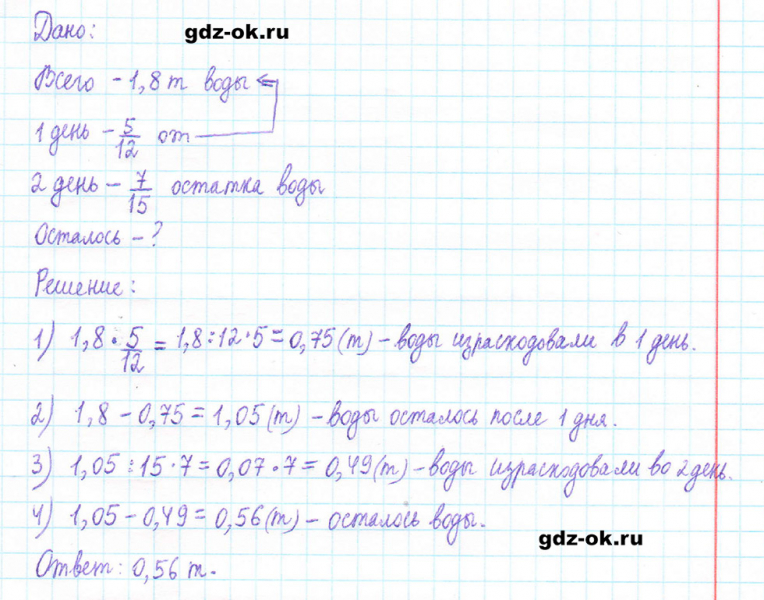 Дано:
gdz-ok.ru
Всего - 1,8 т воды
1 день - 5/12 от
2 день - 7/15 остатка воды
Осталось - ?
Решение:
1) 1,8 · 5/12 = 1,8 : 12 · 5 = 0,75 (т) - воды израсходовали в 1 день.
2) 1,8 - 0,75 = 1,05 (т) - воды осталось после 1 дня.
3) 1,05 : 15 · 7 = 0,07 · 7 = 0,49 (т) - воды израсходовали во 2 день.
4) 1,05 - 0,49 = 0,56 (т) - осталось воды.
gdz-ok.ru
Ответ: 0,56 т.